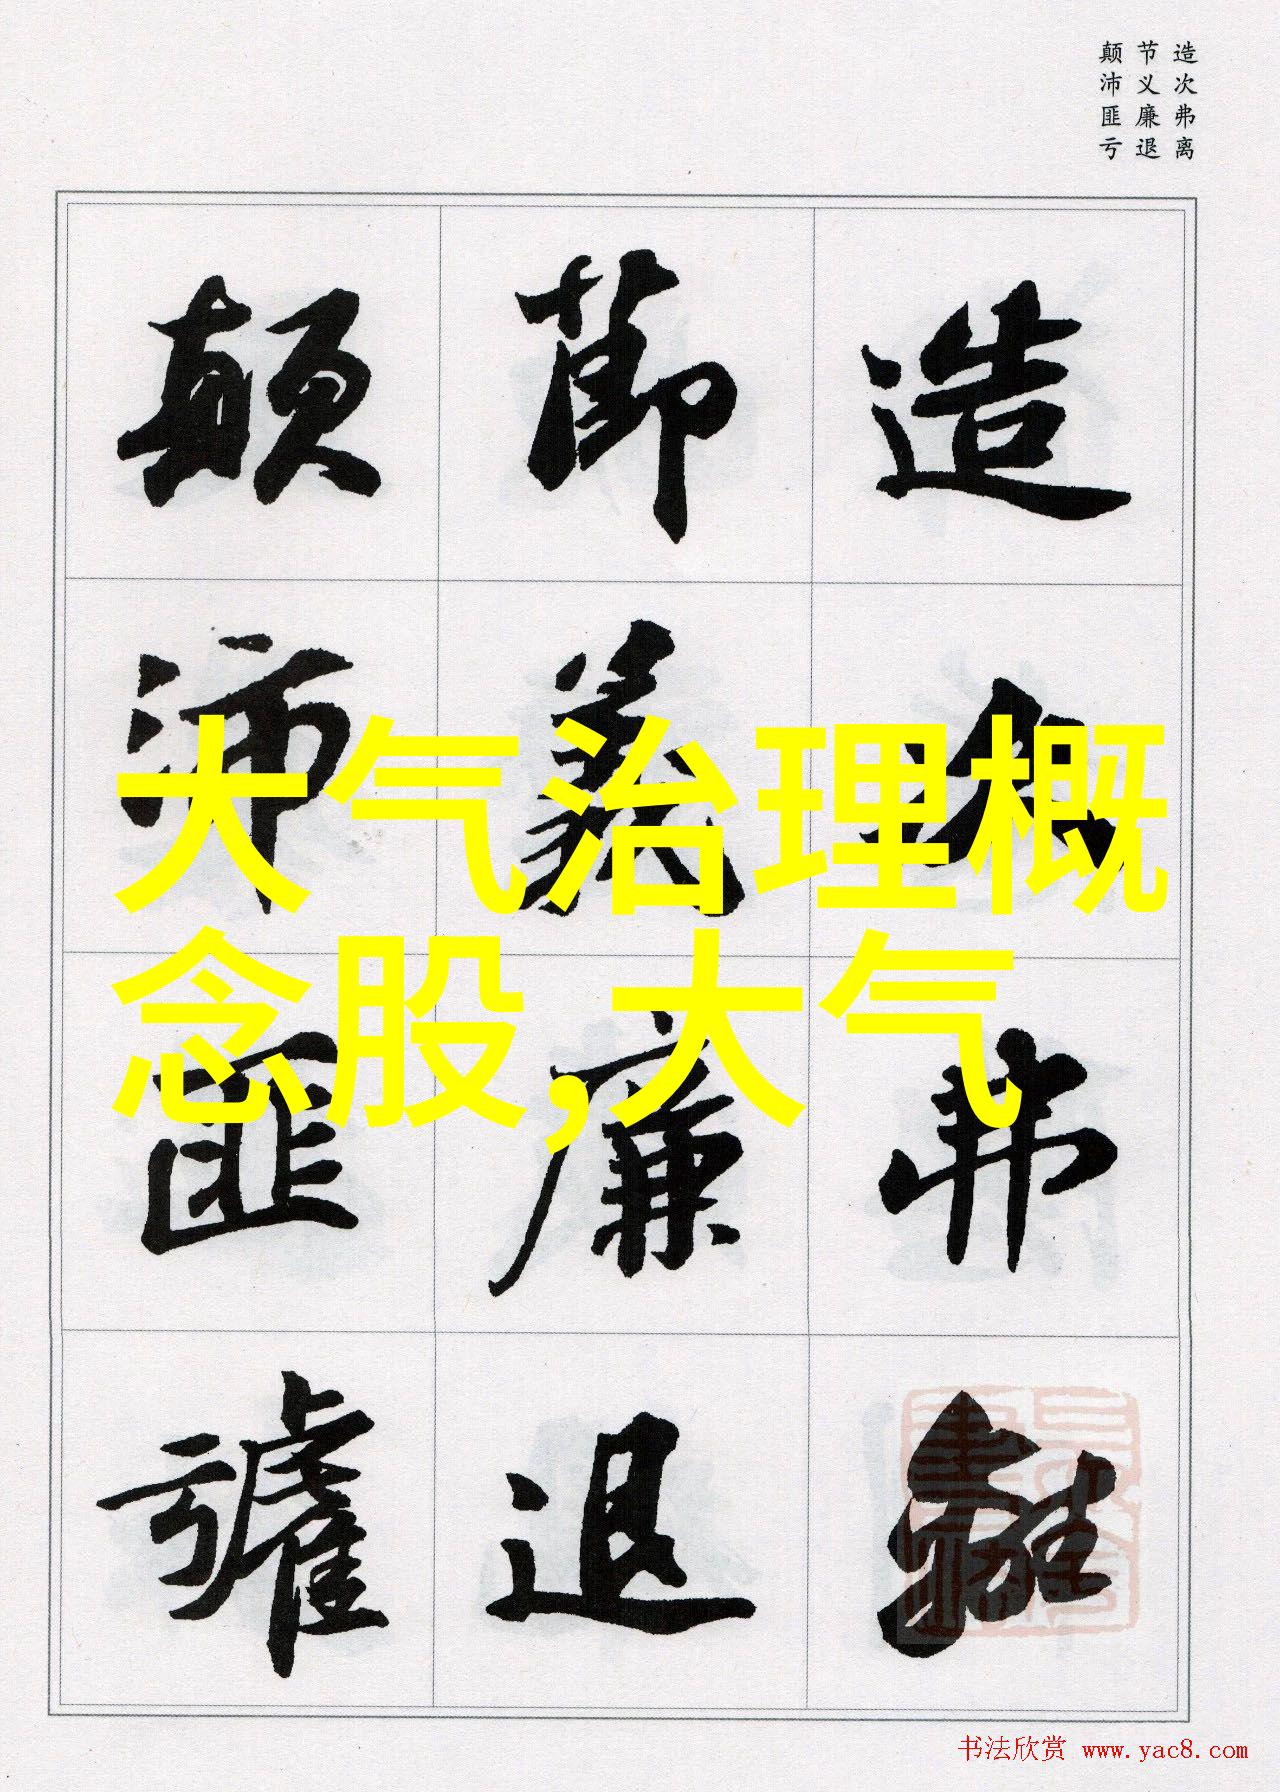 造次弗离
节义廉退
颠沛匪亏
造次弗離
節義廉退
顛沛匪虧
大气治理概
念股,大气
书法欣赏 www.yac8.com